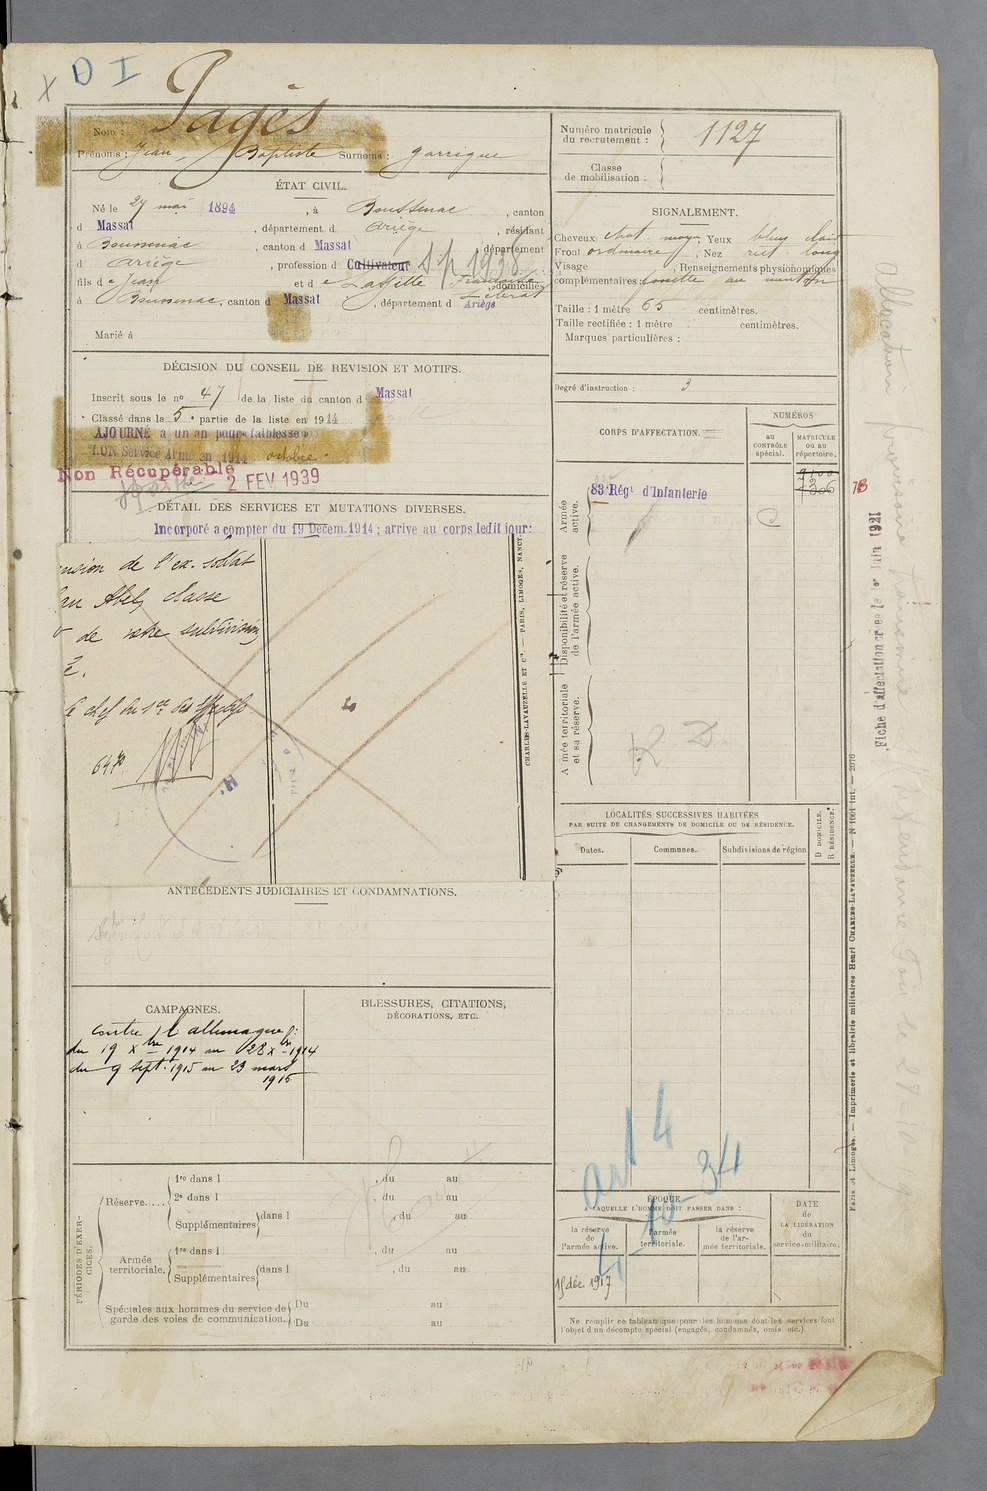 X D I
Pagès
Nom :
Prénoms : Jean Baptiste Surnoms : garrigue
ÉTAT CIVIL.
Né le 27 mai 1894, à Boussenac, canton
d Massat, département d Ariège, résidant
à Boussenac, canton d Massat, département
d Ariège, profession d Cultivateur S/p 1938
fils de Jean et de Laffitte Françoise, domiciliés
à Boussenac, canton d Massat, département d Ariège
Marié à
DÉCISION DU CONSEIL DE REVISION ET MOTIFS.
Inscrit sous le nº 47 de la liste du canton d Massat
Classé dans la 5e partie de la liste en 1914
AJOURNÉ à un an pour « faiblesse »
BON Service Armé en 1914 octobre
Non Récupérable
2 FEV 1939
DÉTAIL DES SERVICES ET MUTATIONS DIVERSES.
Incorporé à compter du 19 Décem. 1914 ; arrivé au corps ledit jour:
nsion de l'ex. soldat
Abel, classe
de votre subdivision
le chef du
CHARLES-LAVAUZELLE ET Cie. — PARIS, LIMOGES, NANCY.
ANTÉCÉDENTS JUDICIAIRES ET CONDAMNATIONS.
CAMPAGNES.
contre l'allemagne :
du 19 Xbre 1914 au 28 Xbre 1914
du 9 sept. 1915 au 23 mars
1916
BLESSURES, CITATIONS,
DÉCORATIONS, ETC.
PÉRIODES D'EXERCICES.
Réserve....
1re dans l , du au
2e dans l , du au
Supplémentaires dans l , du au
Armée territoriale.
1re dans l , du au
Supplémentaires dans l , du au
Spéciales aux hommes du service de
garde des voies de communication.
Du au
Du au
Numéro matricule
du recrutement : 1127
Classe
de mobilisation :
SIGNALEMENT.
Cheveux chat. moyen Yeux bleus clairs
Front ordinaire, Nez rect. long
Visage , Renseignements physionomiques
complémentaires : fossette au menton
Taille : 1 mètre 65 centimètres.
Taille rectifiée : 1 mètre centimètres.
Marques particulières :
Degré d'instruction : 3
CORPS D'AFFECTATION.
NUMÉROS
au
CONTRÔLE
spécial.
MATRICULE
ou au
répertoire.
Armée
active.
83e Régt d'Infanterie
C
Disponibilité et réserve
de l'armée active.
Armée territoriale
et sa réserve.
LOCALITÉS SUCCESSIVES HABITÉES
PAR SUITE DE CHANGEMENTS DE DOMICILE OU DE RÉSIDENCE.
Dates.
Communes.
Subdivisions de région
D DOMICILE.
R RÉSIDENCE.
art 4
4-10-34
ÉPOQUE
A LAQUELLE L'HOMME DOIT PASSER DANS :
la réserve
de
l'armée active.
l'armée
territoriale.
la réserve
de l'ar-
mée territoriale.
DATE
de
LA LIBÉRATION
du
service militaire.
15 déc 1917
Ne remplir ce tableau que pour les hommes dont les services font
l'objet d'un décompte spécial (engagés, condamnés, omis etc.).
Fiche d'affectation créée le 1er Juin 1921
Allocation provisoire
Paris et Limoges. — Imprimerie et librairie militaires Henri CHARLES-LAVAUZELLE. — N 1001 int. — 2076